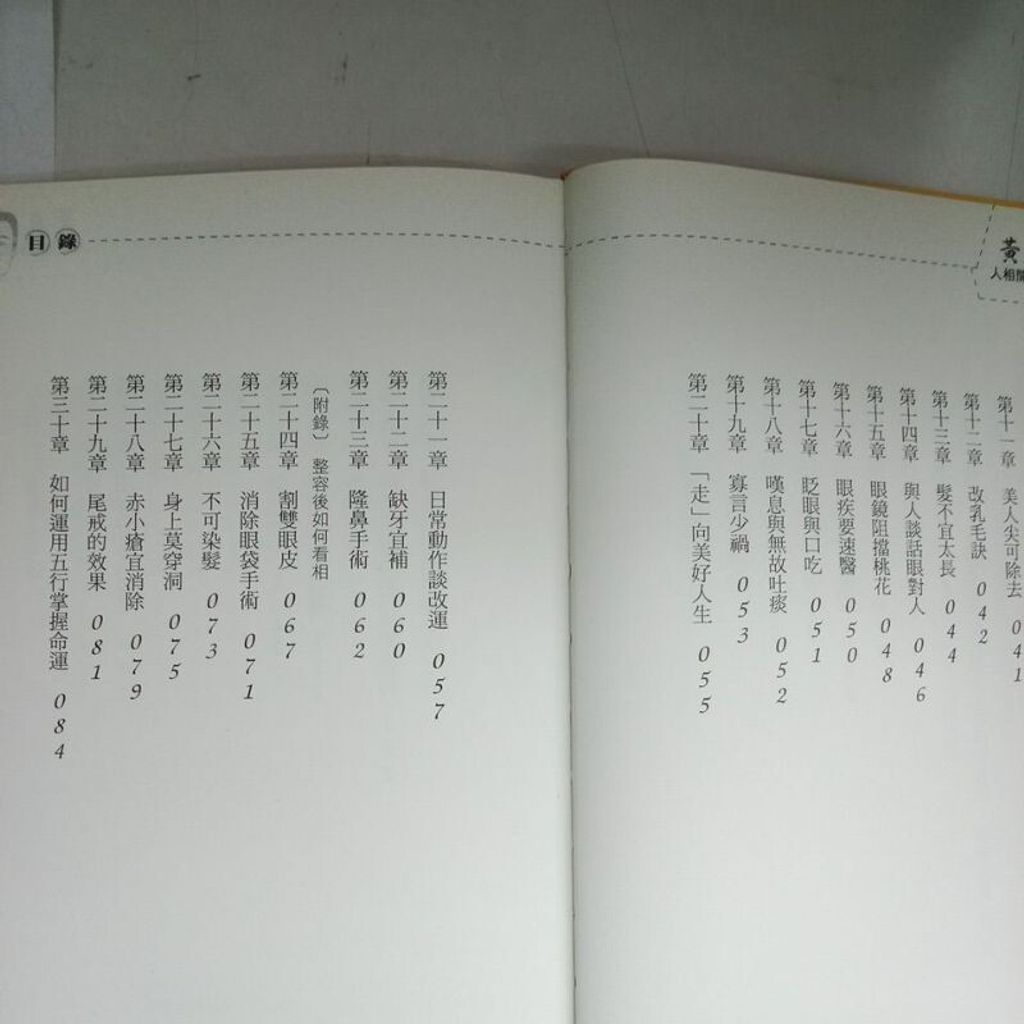 黃
人相
第十一章 美人尖可除去 041
第十二章 改乳毛訣 042
第十三章 髮不宜太長 044
第十四章 與人談話眼對人 046
第十五章 眼鏡阻擋桃花 048
第十六章 眼疾要速醫 050
第十七章 眨眼與口吃 051
第十八章 嘆息與無故吐痰 052
第十九章 寡言少禍 053
第二十章 「走」向美好人生 055
目錄
第二十一章 日常動作談改運 057
第二十二章 缺牙宜補 060
第二十三章 隆鼻手術 062
〔附錄〕 整容後如何看相
第二十四章 割雙眼皮 067
第二十五章 消除眼袋手術 071
第二十六章 不可染髮 073
第二十七章 身上莫穿洞 075
第二十八章 赤小瘡宜消除 079
第二十九章 尾戒的效果 081
第三十章 如何運用五行掌握命運 084